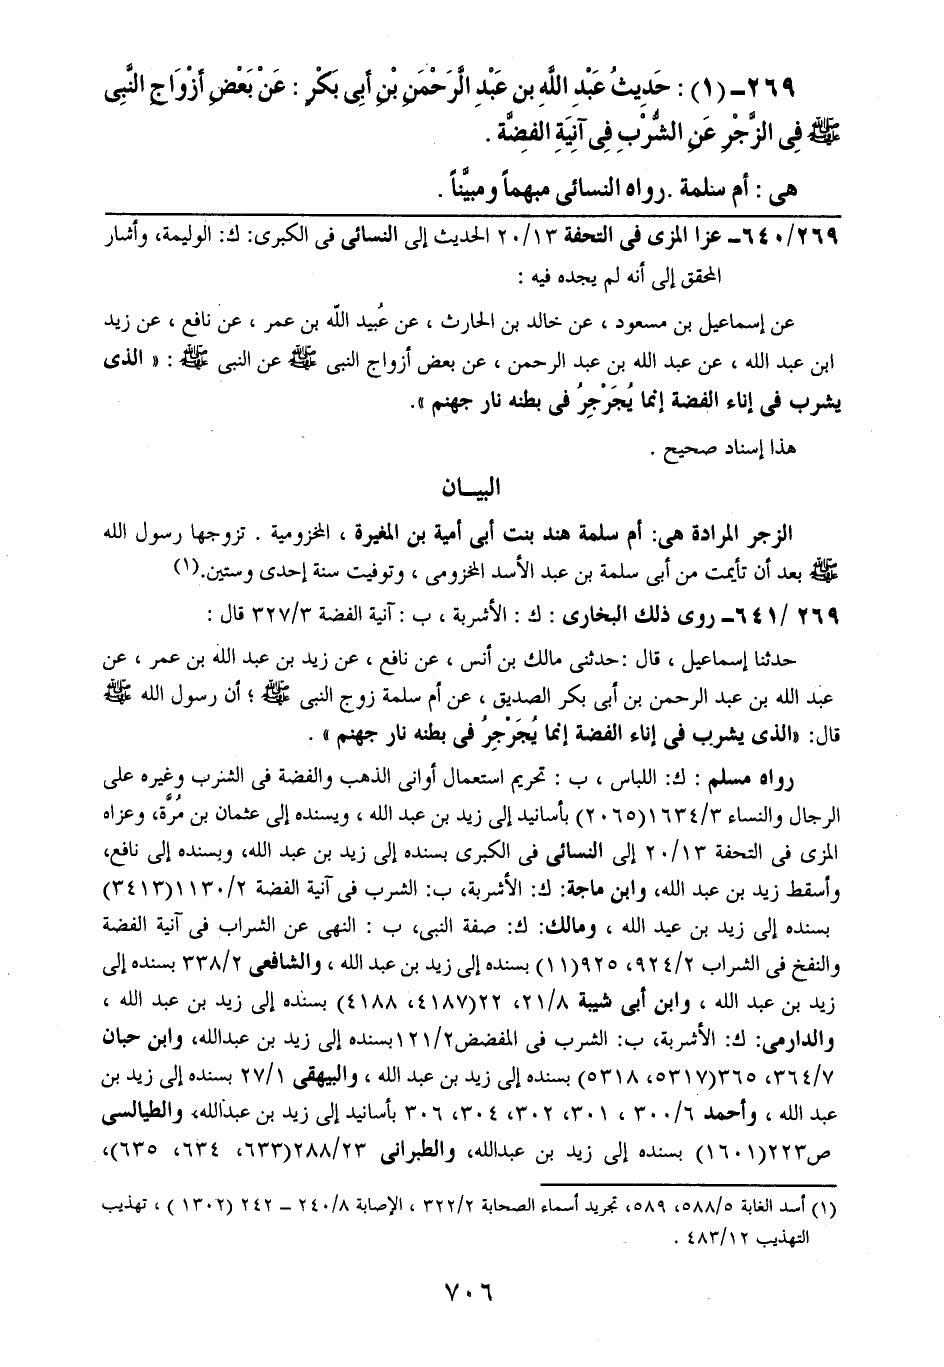 ٢٦٩ــ (١) : حَدِيثُ عَبْدِ اللَّهِ بن عَبْدِ الرَّحْمَنِ بْنِ أبِى بَكْرٍ : عَنْ بَعْضِ أزْوَاجِ النَّبِى
ﷺ فِى الزَّجْرِ عَنِ الشُّرْبِ فِى آنِيَةِ الفِضَّة .
هى : أم سلمة . رواه النسائى مبهماً ومبيَّناً .
٦٤٠/٢٦٩ــ عزا المزى فى التحفة ٢٠/١٣ الحديث إلى النسائى فى الكبرى: ك: الوليمة، وأشار
المحقق إلى أنه لم يجده فيه :
عن إسماعيل بن مسعود ، عن خالد بن الحارث ، عن عُبيد اللّه بن عمر ، عن نافع ، عن زيد
ابن عبد الله ، عن عبد الله بن عبد الرحمن ، عن بعض أزواج النبى ﷺ عن النبى ﷺ : « الذى
يشرب فى إناء الفضة إنما يُجَرْجِرُ فى بطنه نار جهنم ».
هذا إسناد صحيح .
البيــان
الزجر المرادة هى: أم سلمة هند بنت أبى أمية بن المغيرة ، المخزومية . تزوجها رسول الله
ﷺ بعد أن تأيمت من أبى سلمة بن عبد الأسد المخزومى ، وتوفيت سنة إحدى وستين.(١)
٦٤١/ ٢٦٩ــ روى ذلك البخارى : ك : الأشربة ، ب : آنية الفضة ٣٢٧/٣ قال :
حدثنا إسماعيل ، قال :حدثنى مالك بن أنس ، عن نافع ، عن زيد بن عبد الله بن عمر ، عن
عبد الله بن عبد الرحمن بن أبى بكر الصديق ، عن أم سلمة زوج النبى ﷺ ؛ أن رسول الله ﷺ
قال: «الذى يشرب فى إناء الفضة إنما يُجَرْجِرُ فى بطنه نار جهنم » .
رواه مسلم : ك: اللباس ، ب : تحريم استعمال أوانى الذهب والفضة فى الشرب وغيره على
الرجال والنساء ١٦٣٤/٣(٢٠٦٥) بأسانيد إلى زيد بن عبد الله ، ويسنده إلى عثمان بن مُرَّة، وعزاه
المزى فى التحفة ٢٠/١٣ إلى النسائى فى الكبرى بسنده إلى زيد بن عبد الله، وبسنده إلى نافع،
وأسقط زيد بن عبد الله، وابن ماجة: ك: الأشربة، ب: الشرب فى آنية الفضة ١١٣٠/٢(٣٤١٣)
بسنده إلى زيد بن عبد الله ، ومالك: ك: صفة النبى، ب : النهى عن الشراب فى آنية الفضة
والنفخ فى الشراب ٩٢٤/٢، ٩٢٥(١١) بسنده إلى زيد بن عبد الله ، والشافعى ٣٣٨/٢ بسنده إلى
زيد بن عبد الله ، وابن أبى شيبة ٢١/٨، ٢٢(٤١٨٧، ٤١٨٨) بسنده إلى زيد بن عبد الله ،
والدارمى: ك: الأشربة، ب: الشرب فى المفضض١٢١/٢بسنده إلى زيد بن عبدالله، وابن حبان
٣٦٤/٧، ٣٦٥(٥٣١٧، ٥٣١٨) بسنده إلى زيد بن عبد الله ، والبيهقى ٢٧/١ بسنده إلى زيد بن
عبد الله ، وأحمد ٣٠٠/٦ ، ٣٠١، ٣٠٢، ٣٠٤، ٣٠٦ بأسانيد إلى زيد بن عبدالله، والطيالسى
ص٢٢٣(١٦٠١) بسنده إلى زيد بن عبدالله، والطبرانى ٢٨٨/٢٣(٦٣٣، ٦٣٤، ٦٣٥)،
(١) أسد الغابة ٥٨٨/٥، ٥٨٩، تجريد أسماء الصحابة ٣٢٢/٢ ، الإصابة ٢٤٠/٨ ــ ٢٤٢ (١٣٠٢ ) ، تهذيب
التهذيب ٤٨٣/١٢ .
٧٠٦